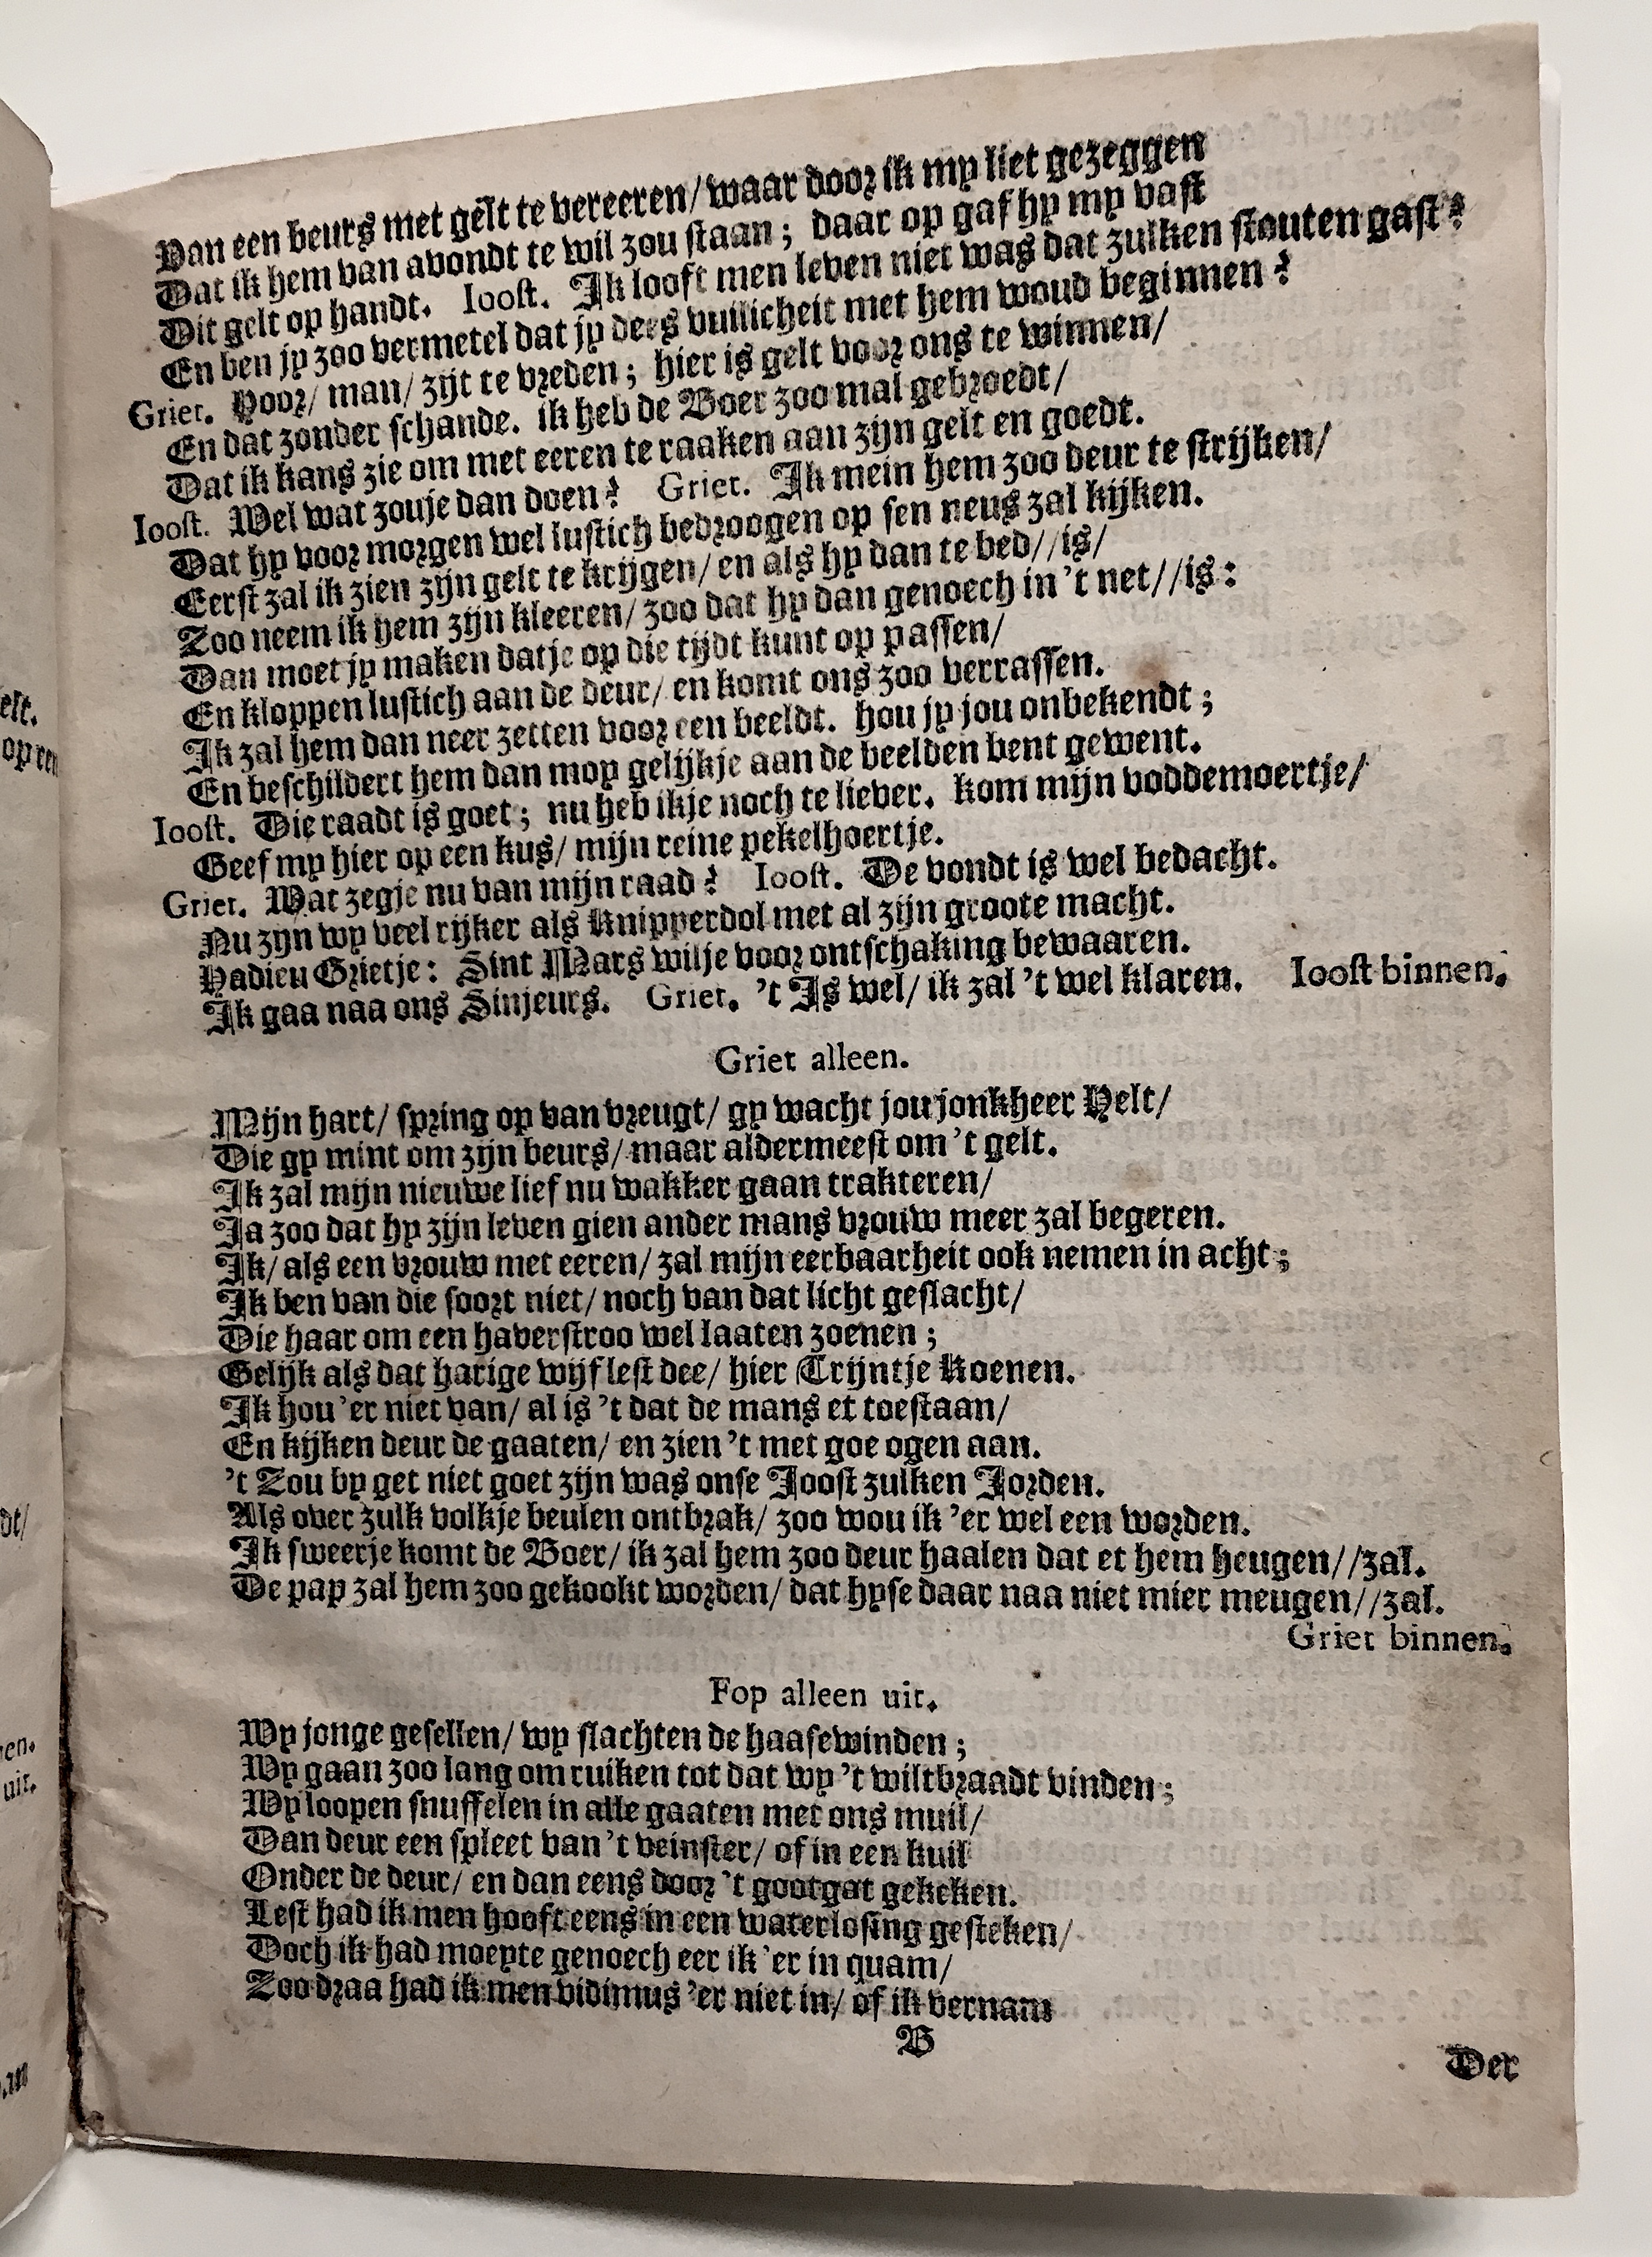 Van een beurs met gelt te vereeren/ waar door ik my liet gezeggen
Dat ik hem van avondt te wil zou staan; daar op gaf hy my vast
Dit gelt op handt. Ioost. Ik looft men leven niet was dat zulken stouten gast?
En ben jy zoo vermetel dat jy dees vuilicheit met hem woud beginnen?
Griet. Hoor/ man/ zijt te vreden; hier is gelt voor ons te winnen/
En dat zonder schande. ik heb de Boer zoo mal gebroedt/
Dat ik kans zie om met eeren te raaken aan zijn gelt en goedt.
Ioost. Wel wat zouje dan doen? Griet. Ik mein hem zoo deur te strijken/
Dat hy voor morgen wel lustich bedroogen op sen neus zal kijken.
Eerst zal ik zien zijn gelt te krijgen/ en als hy dan te bed//is/
Zoo neem ik hem zijn kleeren/ zoo dat hy dan genoech in 't net//is:
Dan moet jy maken datje op die tijdt kunt op passen/
En kloppen lustich aan de deur/ en komt ons zoo verrassen.
Ik zal hem dan neer zetten voor een beeldt. hou jy jou onbekendt;
En beschildert hem dan moy gelijkje aan de beelden bent gewent.
Ioost. Die raadt is goet; nu heb ikje noch te liever. kom mijn voddemoertje/
Geef my hier op een kus/ mijn reine pekelhoertje.
Griet. Wat zegje nu van mijn raad? Ioost. De vondt is wel bedacht.
Nu zyn wy veel rijker als Knipperdol met al zijn groote macht.
Hadieu Grietje: Sint Mars wilje voor ontschaking bewaaren.
Ik gaa naa ons Sinjeurs. Griet. 't Is wel/ ik zal 't wel klaren. Ioost binnen.
Griet alleen.
Mijn hart/ spring op van vreugt/ gy wacht jou jonkheer Helt/
Die gy mint om zijn beurs/ maar aldermeest om 't gelt.
Ik zal mijn nieuwe lief nu wakker gaan trakteren/
Ja zoo dat hy zijn leven gien ander mans vrouw meer zal begeren.
Ik/ als een vrouw met eeren/ zal mijn eerbaarheit ook nemen in acht;
Ik ben van die soort niet/ noch van dat licht geslacht/
Die haar om een haverstroo wel laaten zoenen;
Gelijk als dat harige wijf lest dee/ hier Trijntje Koenen.
Ik hou 'er niet van/ al is 't dat de mans et toestaan/
En kijken deur de gaaten/ en zien 't met goe ogen aan.
't Zou by get niet goet zijn was onse Joost zulken Jorden.
Als over zulk volkje beulen ontbrak/ zoo wou ik 'er wel een worden.
Ik sweerje komt de Boer/ ik zal hem zoo deur haalen dat et hem heugen//zal.
De pap zal hem zoo gekookt worden/ dat hyse daar naa niet mier meugen//zal.
Griet binnen.
Fop alleen uit.
Wy jonge gesellen/ wy slachten de haasewinden;
Wy gaan zoo lang om ruiken tot dat wy 't wiltbraadt vinden;
Wy loopen snuffelen in alle gaaten met ons muil/
Dan deur een spleet van 't veinster/ of in een kuil
Onder de deur/ en dan eens door 't gootgat gekeken.
Lest had ik men hooft eens in een waterlosing gesteken/
Doch ik had moeyte genoech eer ik 'er in quam/
Zoo draa had ik men vidimus 'er niet in/ of ik vernam
B
Der